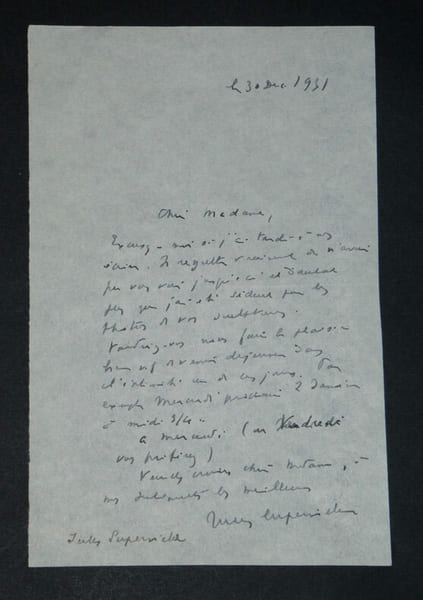 le 30 Dec 1931
Chère Madame,
Excusez-moi si j'ai tardé à vous
écrire. Je regrette vraiment de n'avoir
pu vous voir jusqu'ici et d'autant
plus que j'ai été séduit par les
photos de vos sculptures.
Voudriez-vous nous faire le plaisir
de venir déjeuner dans
l'intimité un de ces jours. Par
exemple Mercredi prochain 2 Janvier
à midi 3/4.
à mercredi (ou Vendredi
vous préférez)
Veuillez croire, chère Madame, à
mes sentiments les meilleurs
Jules Supervielle
Jules Supervielle